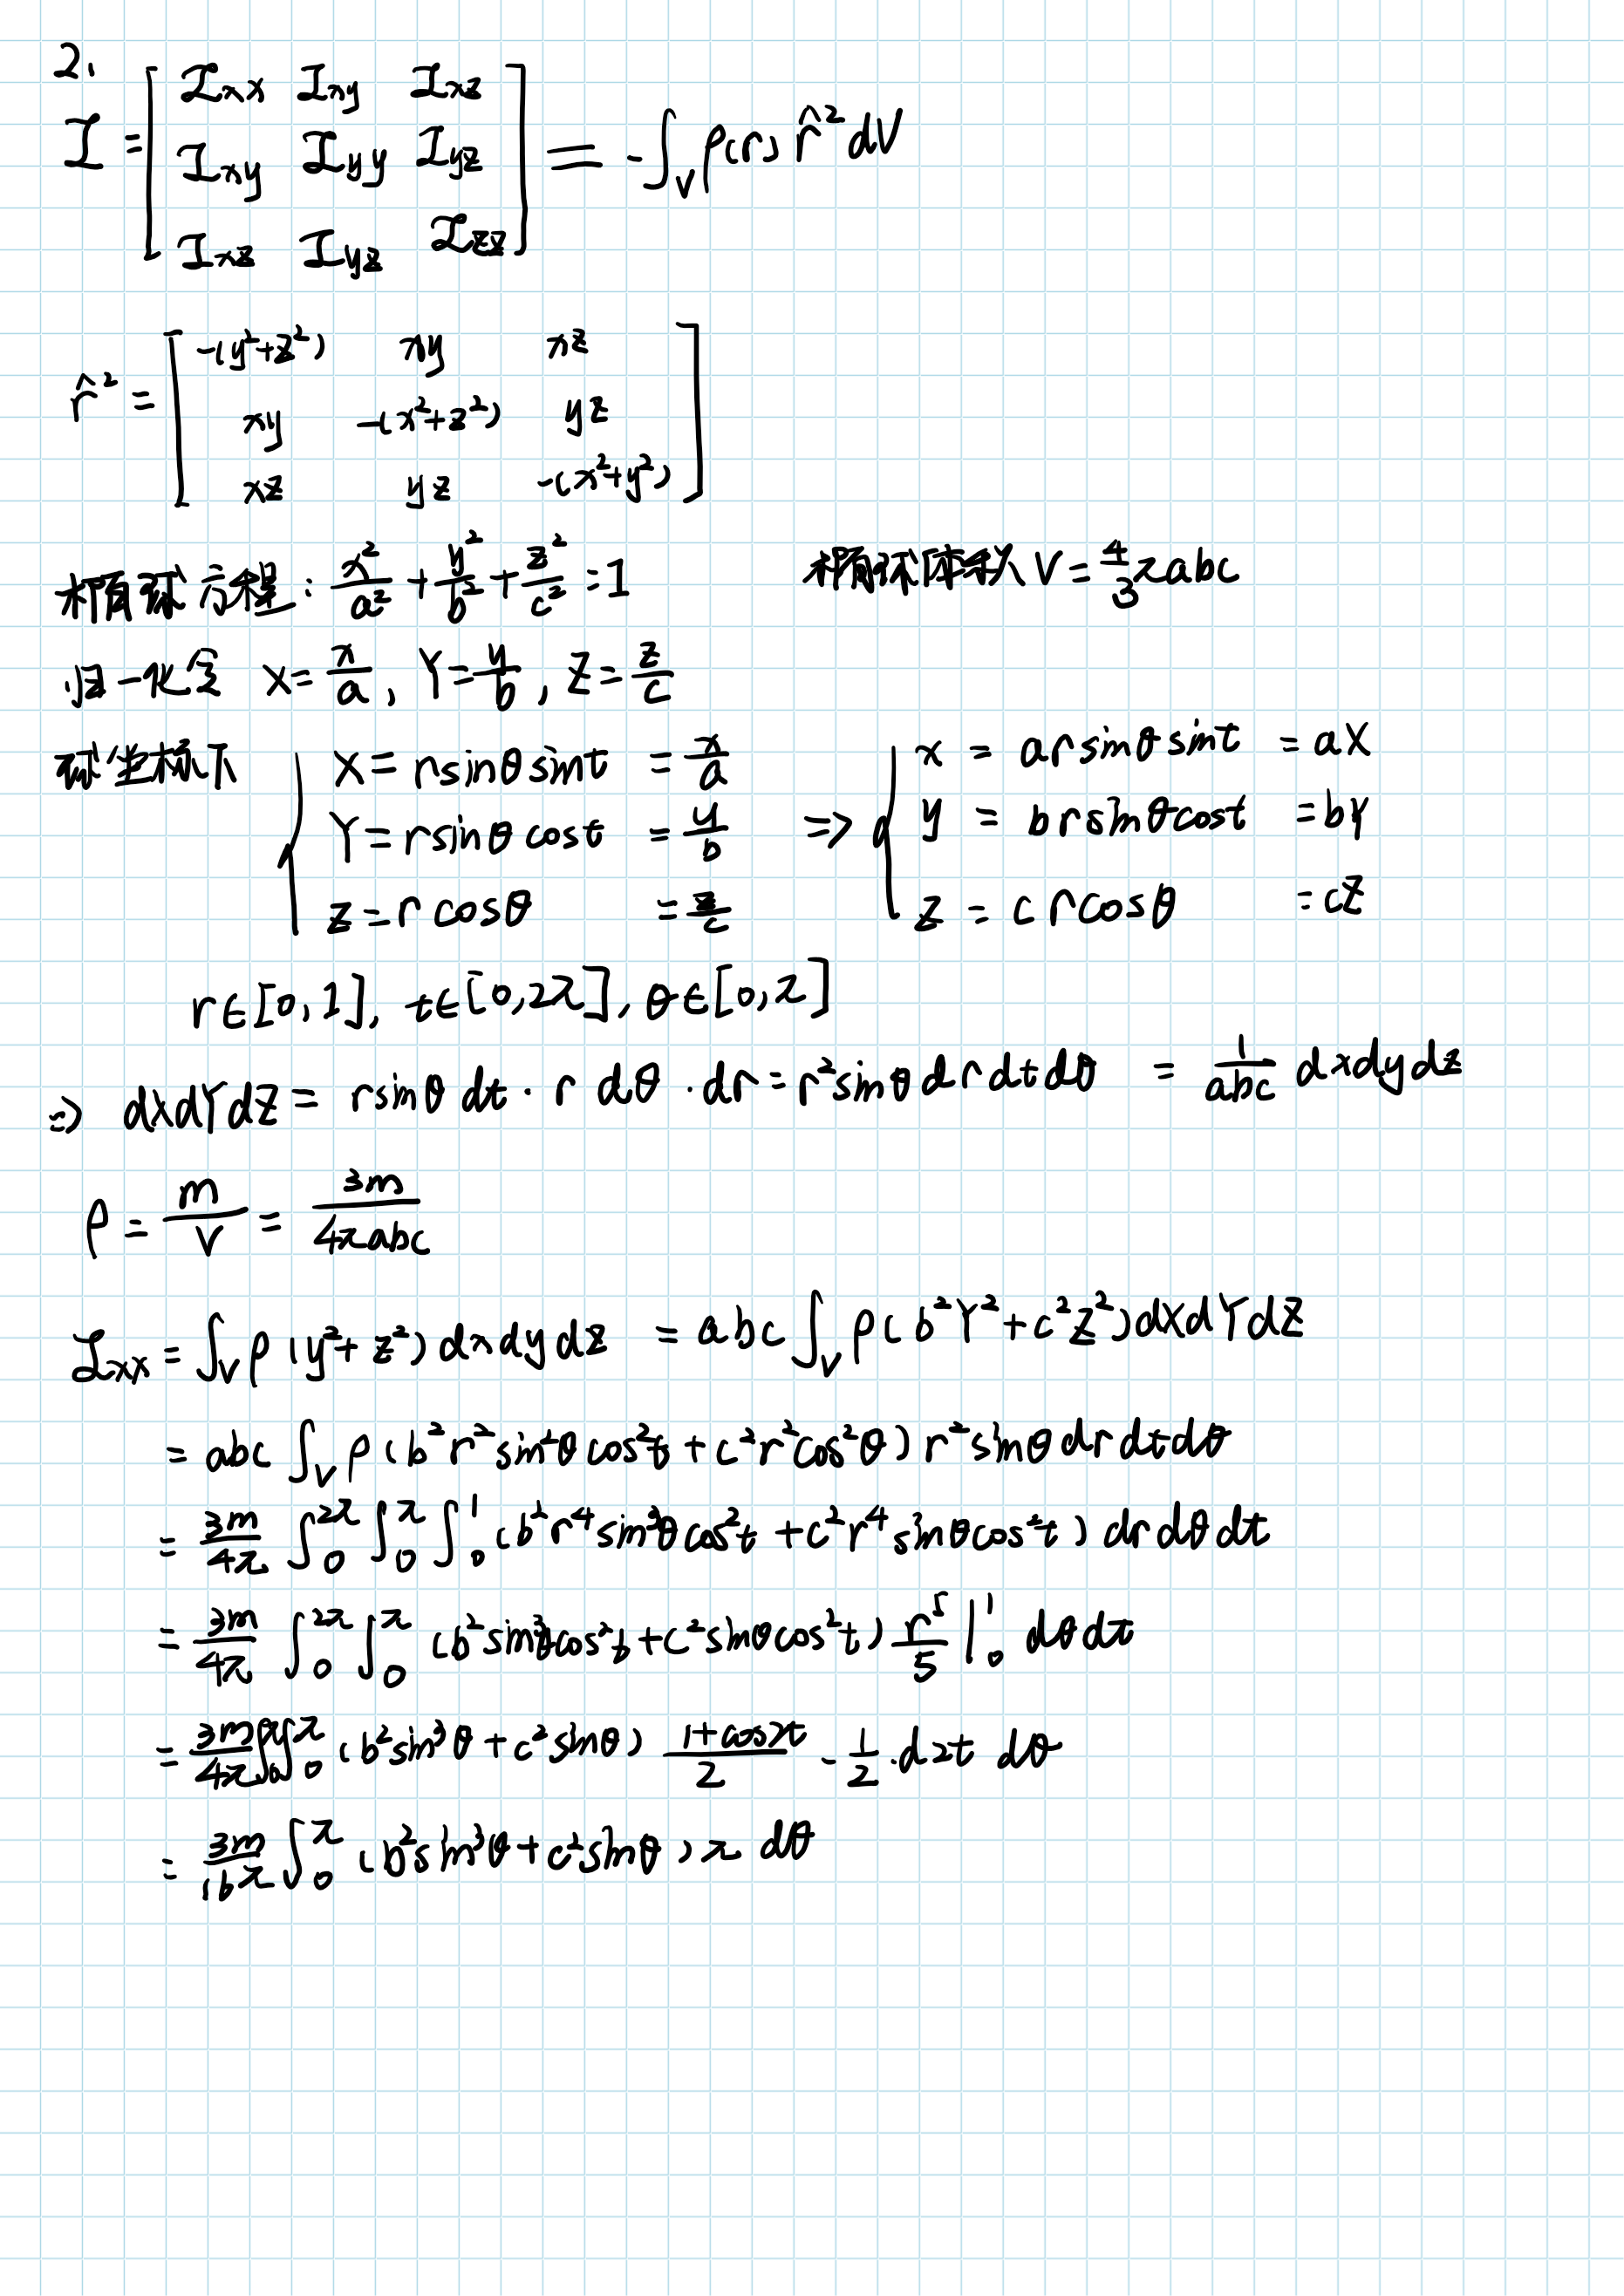 2.
I = [ I_xx I_xy I_xz
I_xy I_yy I_yz
I_xz I_yz I_zz ] = -∫_V ρ(r) r̂² dV
r̂² = [ -(y²+z²) xy xz
xy -(x²+z²) yz
xz yz -(x²+y²) ]
椭球方程: x²/a² + y²/b² + z²/c² = 1 椭球体积 V = 4/3 πabc
归一化令 X = x/a, Y = y/b, Z = z/c
球坐标下 { X = r sinθ sint = x/a ⇒ { x = a r sinθ sint = aX
Y = r sinθ cost = y/b y = b r sinθ cost = bY
Z = r cosθ = z/c z = c r cosθ = cZ
r∈[0,1], t∈[0,2π], θ∈[0,π]
⇒ dXdYdZ = r sinθ dt · r dθ · dr = r² sinθ dr dt dθ = 1/abc dxdydz
ρ = m/V = 3m/4πabc
I_xx = ∫_V ρ (y²+z²) dxdydz = abc ∫_V ρ (b²Y²+c²Z²) dXdYdZ
= abc ∫_V ρ (b²r² sin²θ cos²t + c²r² cos²θ) r² sinθ dr dt dθ
= 3m/4π ∫_0^2π ∫_0^π ∫_0^1 (b²r⁴ sin³θ cos²t + c²r⁴ sinθ cos²t) dr dθ dt
= 3m/4π ∫_0^2π ∫_0^π (b² sin³θ cos²t + c² sinθ cos²t) r⁵/5 |_0^1 dθ dt
= 3m/4π ∫_0^π ∫_0^π (b² sin³θ + c² sinθ) (1+cos2t)/2 · 1/2 · d2t dθ
= 3m/16π ∫_0^π (b² sin³θ + c² sinθ) π dθ